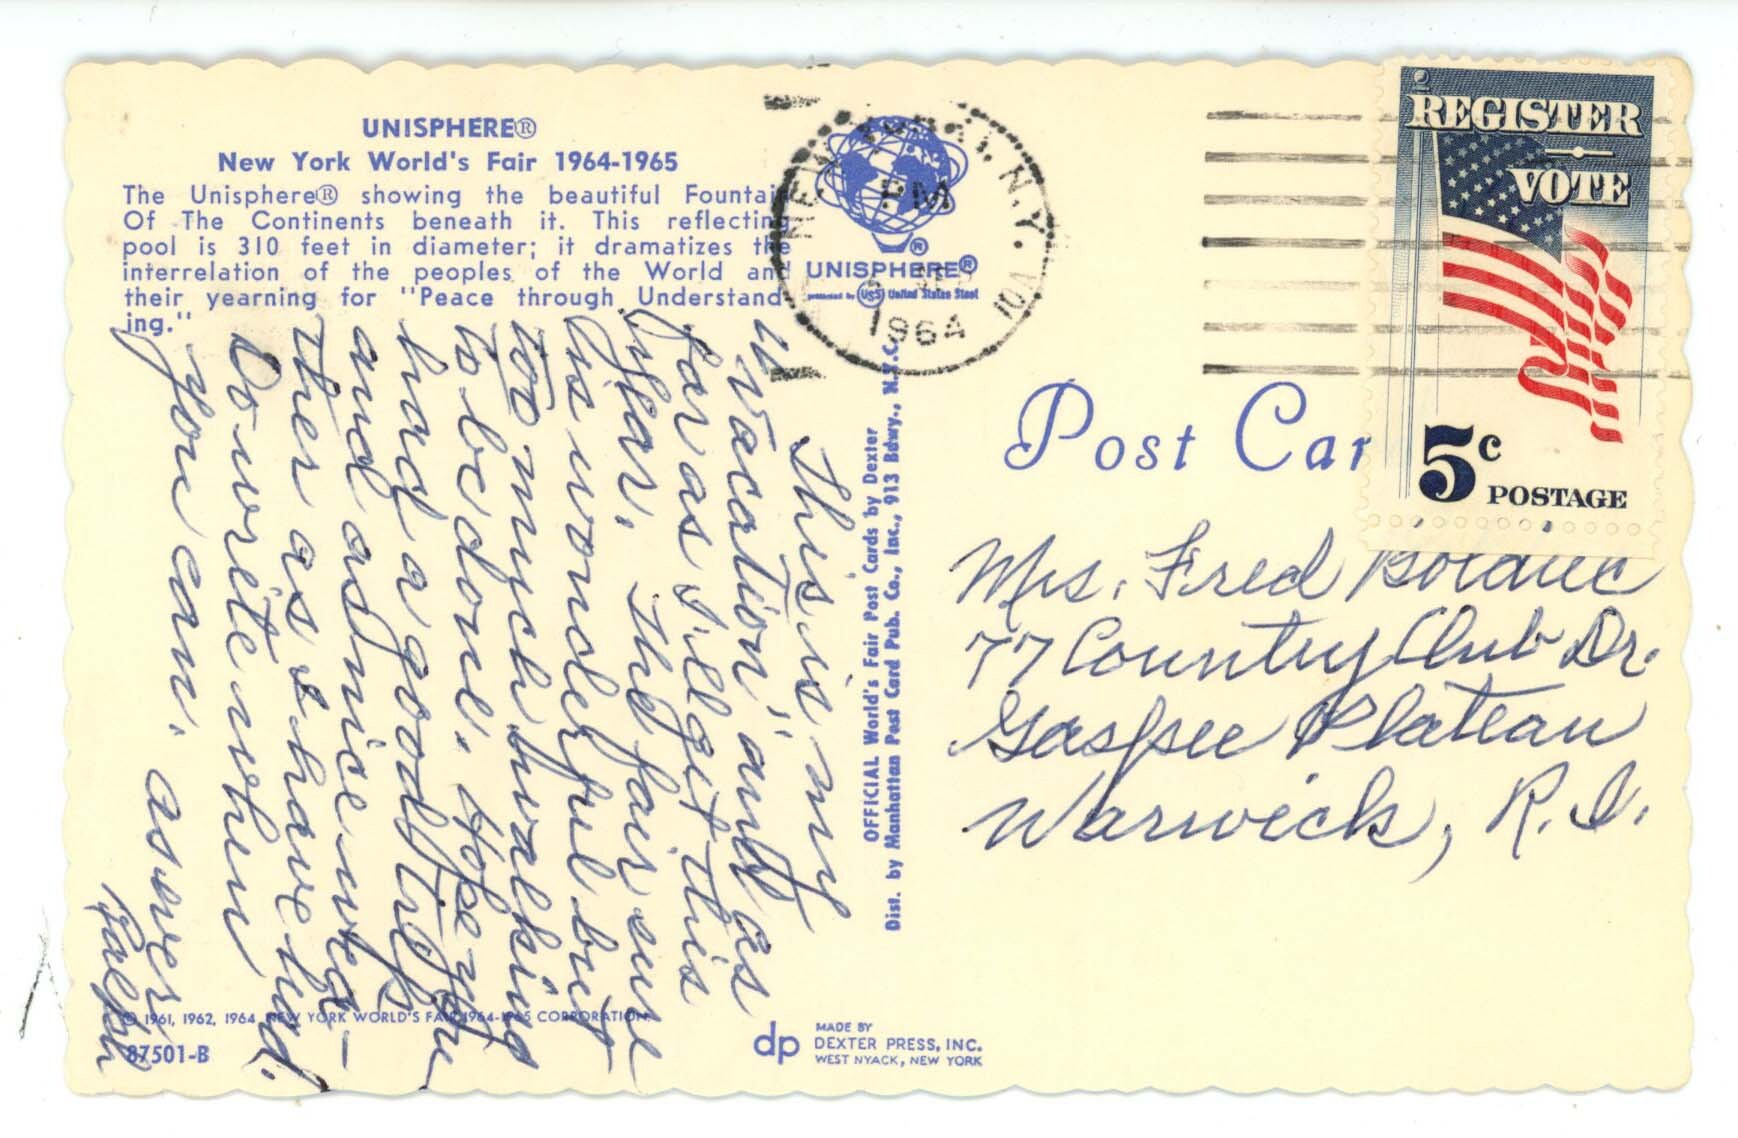 UNISPHERE®
New York World's Fair 1964-1965
The Unisphere® showing the beautiful Fountain
Of The Continents beneath it. This reflecting
pool is 310 feet in diameter; it dramatizes the
interrelation of the peoples of the World and
their yearning for "Peace through Understand-
ing."
This is my
"vacation", and as
far as I'll get this
year. The fair sure
is wonderful but
too much walking
to be done. Hope you
had a good trip
and as nice wea-
ther as I have had.
Do write when
you can.
as ever
Ralph
© 1961, 1962, 1964 NEW YORK WORLD'S FAIR 1964-1965 CORPORATION
87501-B
UNISPHERE®
presented by USS United States Steel
NEW YORK, N.Y.
PM
1964
10A
OFFICIAL World's Fair Post Cards by Dexter
Dist. by Manhattan Post Card Pub. Co., Inc., 913 Bdwy., N.Y.C.
dp
MADE BY
DEXTER PRESS, INC.
WEST NYACK, NEW YORK
REGISTER
VOTE
5c POSTAGE
Post Car
Mrs. Fred Bolduc
77 Country Club Dr.
Gaspee Plateau
Warwick, R.I.